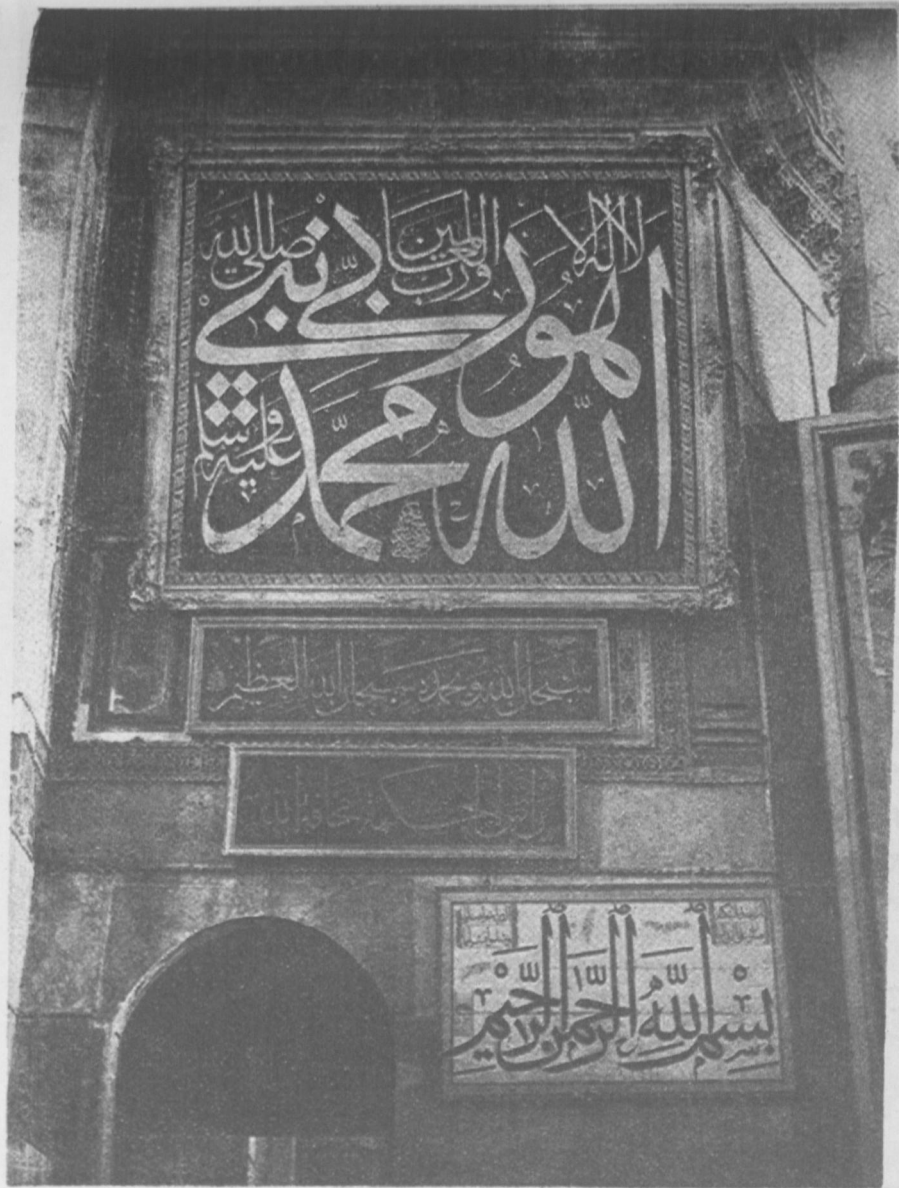 لا اله الا هو رب العالمين
الله ربي
محمد نبيي
صلى الله عليه وسلم
سبحان الله وبحمده سبحان الله العظيم
رأس الحكمة مخافة الله
بسم الله الرحمن الرحيم